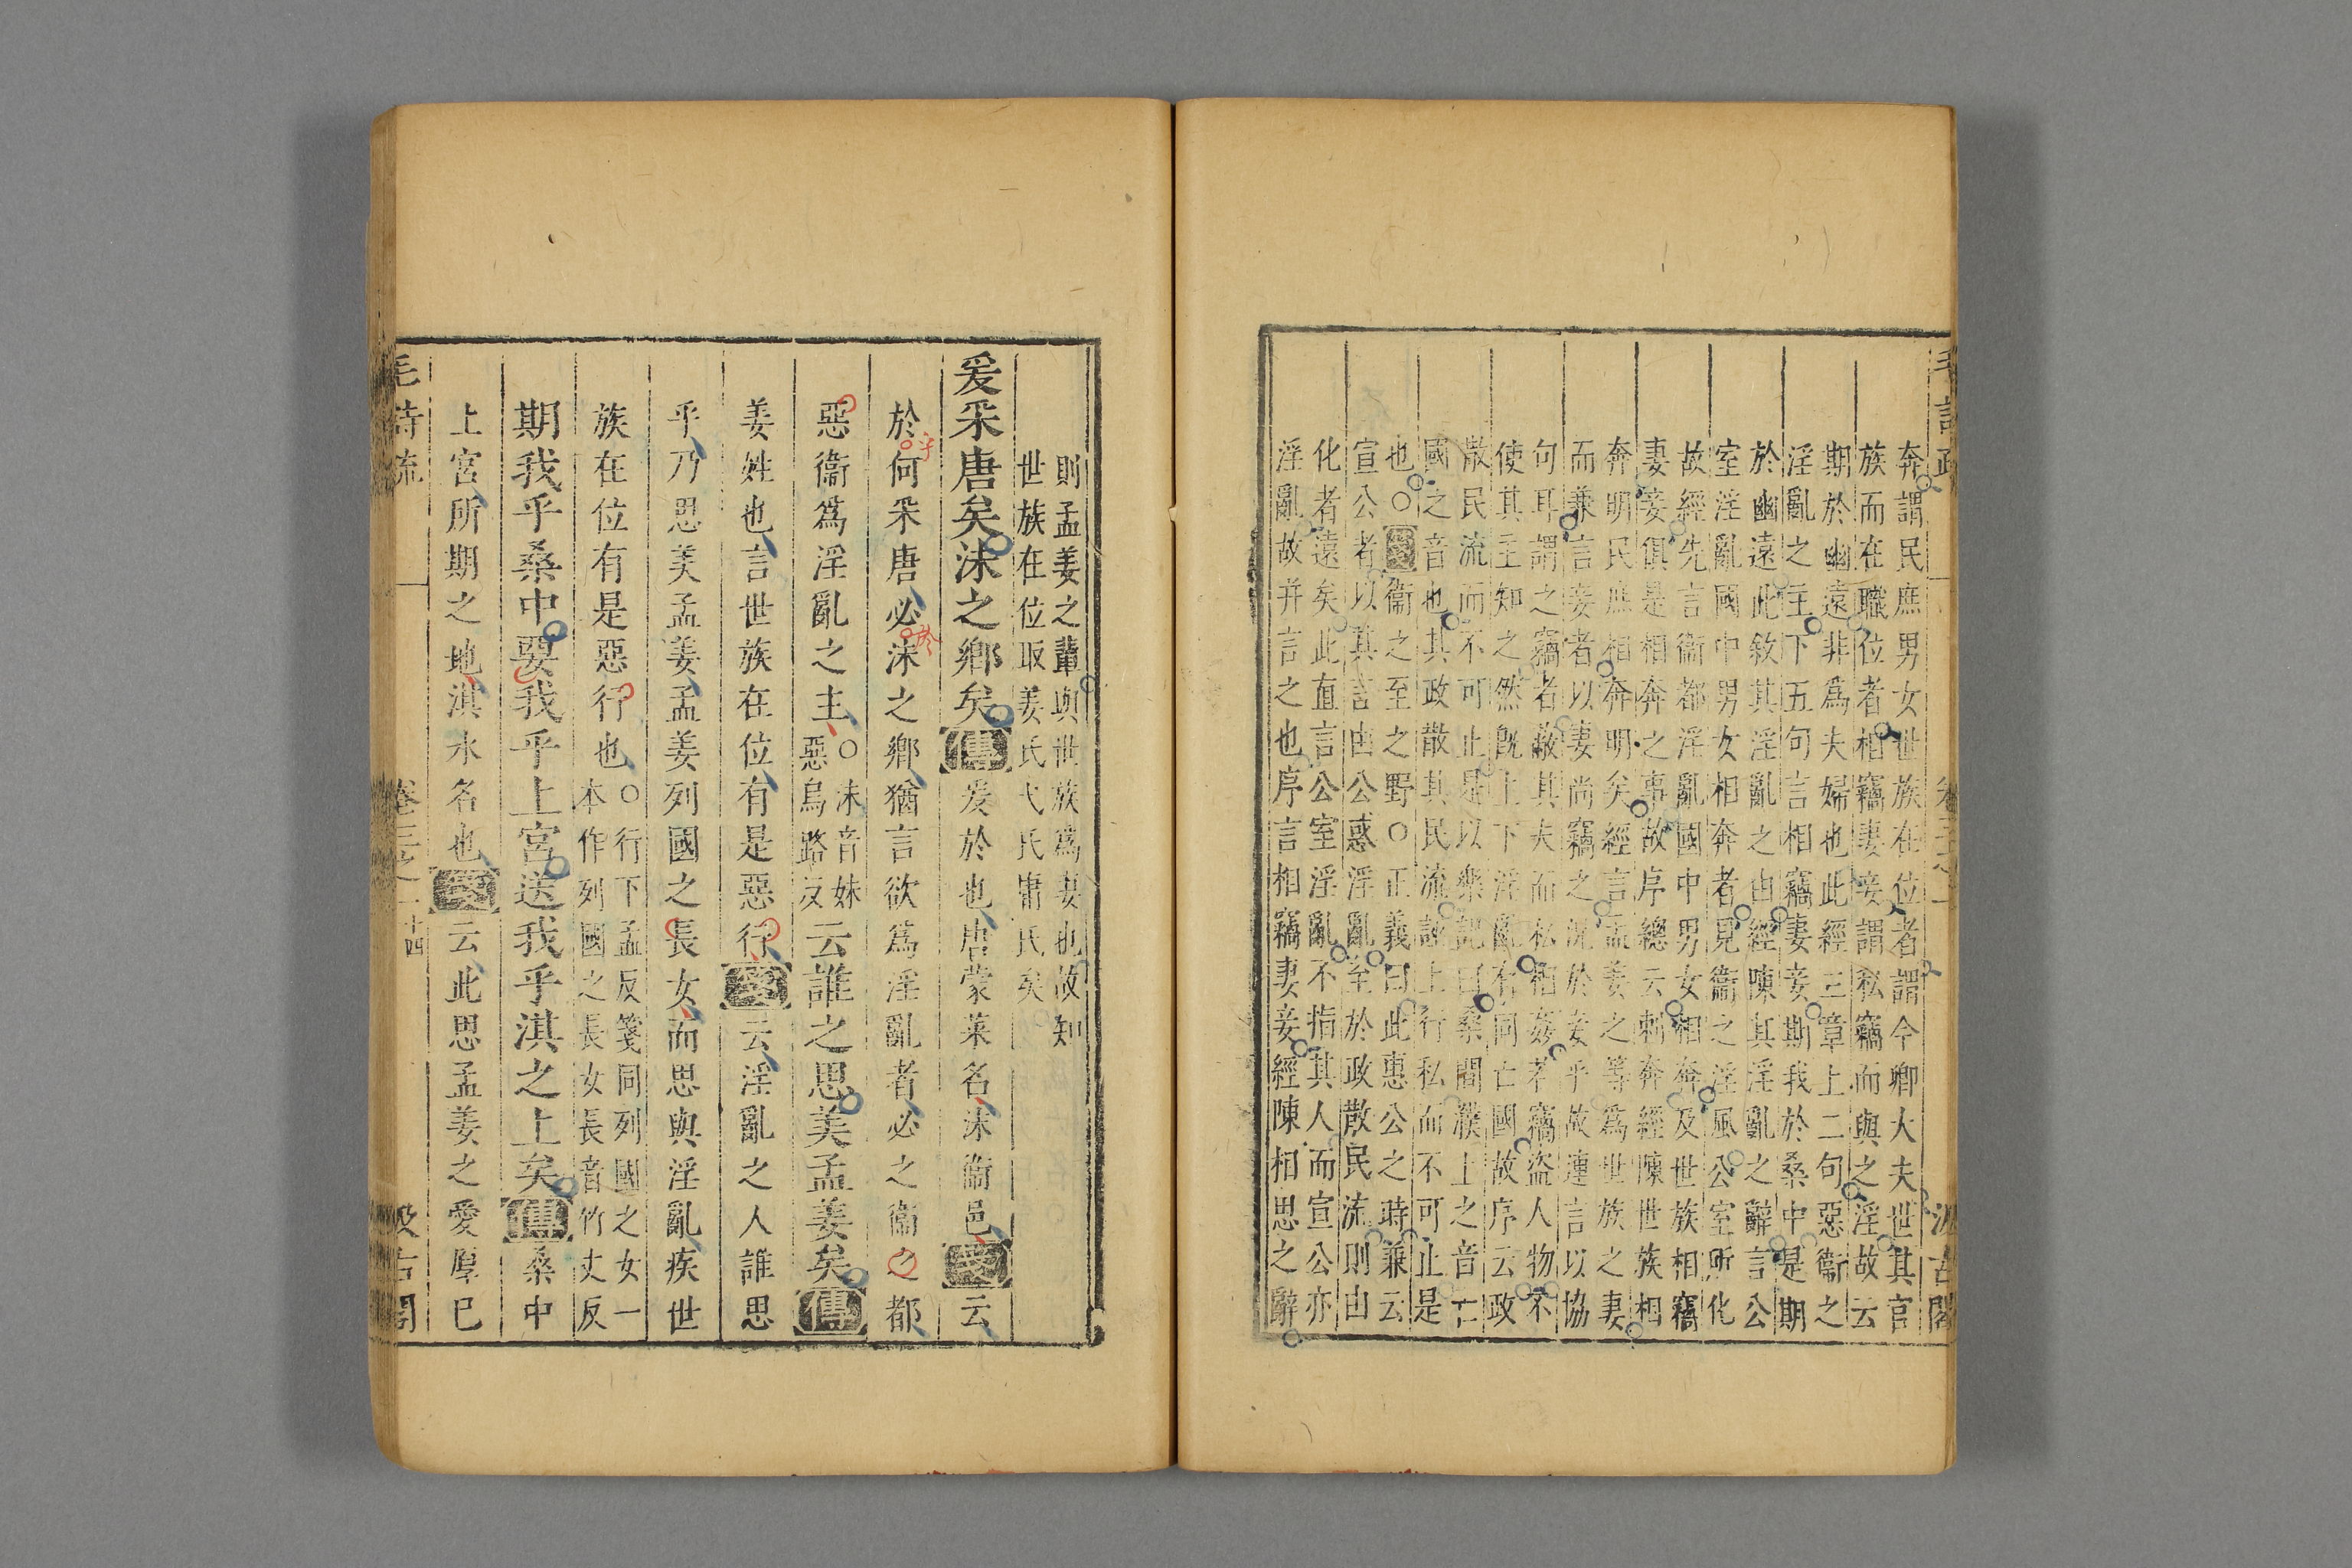 毛詩疏 卷三之一 汲古閣
奔謂民庶男女世族在位者謂今卿大夫世其官
族而在職位者相竊妻妾謂私竊而與之淫故云
期於幽遠非爲夫婦也此經三章上二句惡衞之
淫亂之主下五句言相竊妻妾期我於桑中是期
於幽遠此敘其淫亂之由經陳其淫亂之辭言公
室淫亂國中男女相奔者見衞之淫風公室所化
故經先言衞都淫亂國中男女相奔及世族相竊
妻妾俱是相奔之事故序總云刺奔經陳世族相
奔明民庶相奔明矣經言孟姜之等爲世族之妻
而兼言妾者以妻尚竊之況於妾乎故連言以協
句耳謂之竊者蔽其夫而私相姦若竊盜人物不
使其主知之然旣上下淫亂有同亡國故序云政
散民流而不可止是以樂記曰桑間濮上之音亡
國之音也其政散其民流誣上行私而不可止是
也○箋衞之至之野○正義曰此惠公之時兼云
宣公者以其言由公惑淫亂至於政散民流則由
化者遠矣此直言公室淫亂不指其人而宣公亦
淫亂故幷言之也序言相竊妻妾經陳相思之辭
則孟姜之輩與世族爲妻也故知
世族在位取姜氏弋氏庸氏矣
爰采唐矣沬之鄉矣傳爰於也唐蒙菜名沬衞邑箋云
於何采唐必沬之鄉猶言欲爲淫亂者必之衞之都
乎
於
惡衞爲淫亂之主○沬音妹
惡烏路反云誰之思美孟姜矣傳
姜姓也言世族在位有是惡行箋云淫亂之人誰思
乎乃思美孟姜孟姜列國之長女而思與淫亂疾世
族在位有是惡行也○行下孟反箋同列國之女一
本作列國之長女長音竹丈反
期我乎桑中要我乎上宮送我乎淇之上矣傳桑中
上宮所期之地淇水名也箋云此思孟姜之愛厚已
毛詩疏 卷三之一 十四 汲古閣